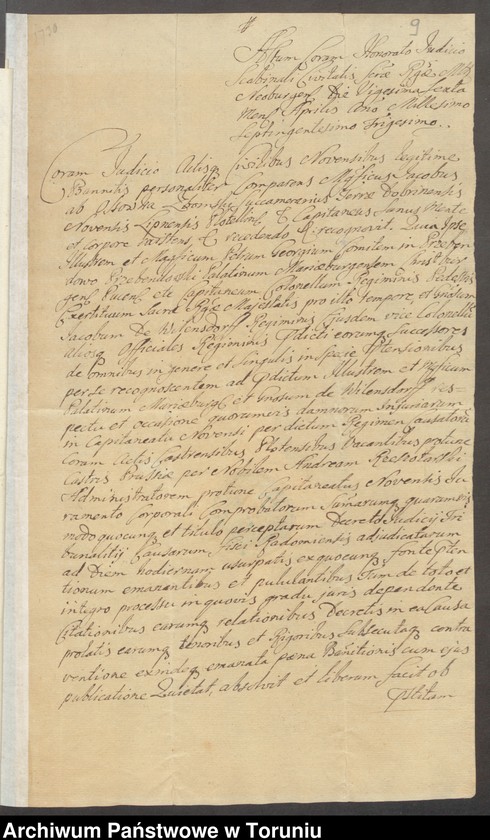 1730
9
Actum Coram Honorato Judicio
Scabinali Civitatis Sere Rgæ Mttis
Neoburgens Die Vigesima Sexta
Mens Aprilis Ano Millesimo
Septingentesimo Trigesimo.
Coram Judicio Actisq Civilibus Novensibus legitime
Bannitis personaliter Comparens Mgficus Jacobus
ab Zboinski Succamerarius Terræ Dobrinensis
Novensis Lipnensis Capitaneus Sanus Mente
et Corpore existens, recedendo recognovit. Quia Ipse
Illustrem et Magficum Petrum Georgium Comitem in Przeben
dowo Przebendowski Palatinum Marieburgensem
Capitaneum Colonellum Regiminis Pedestris
Exercituum Sacræ Rgæ Majestatis pro illo tempore, et Gnosum
Jacobum De Wilensdorff Regiminis Ejusdem vice Colonellum
aliosq Officiales Regiminis Pdicti eorumq Successores
de omnibus in genere et Singulis in Specie Ptensionibus
per se recognoscentem ad Pdictum Illustrem et Mgficum
Palatinum Marieburgs et Gnosum de Wilensdorff res=
pectu et occasione quorumvis damnorum Injuriarum
in Capitaneatu Novensi per dictum Regimen causatorum
Coram Actis Castrensibus Vacantibus protunc
Castris Prussiæ per Nobilem Andream
Administratorem protunc Capitaneatus Novensis Ju
ramento Corporali Comprobatorum Sumarumq quarumvis
modo quocunq et titulo perceptarum Decreto Judicij Tri
bunalitij Causarum Fisci Radomiensis adjudicatarum
ad Diem hodiernam usurpatis ex quocunq fonte Pten
tionum emanantibus et pullulantibus Tum de toto et
integro processu in quovis gradu juris dependente
Citationibus earumq relationibus Decretis in ea Causa
prolatis eorumq tenoribus et Rigoribus Subsecutaq contra
ventione exindeq emanata pœna Bannitionis cum ejus
publicatione Quietat, absolvit et liberum facit ob
Pstitam
Archiwum Państwowe w Toruniu